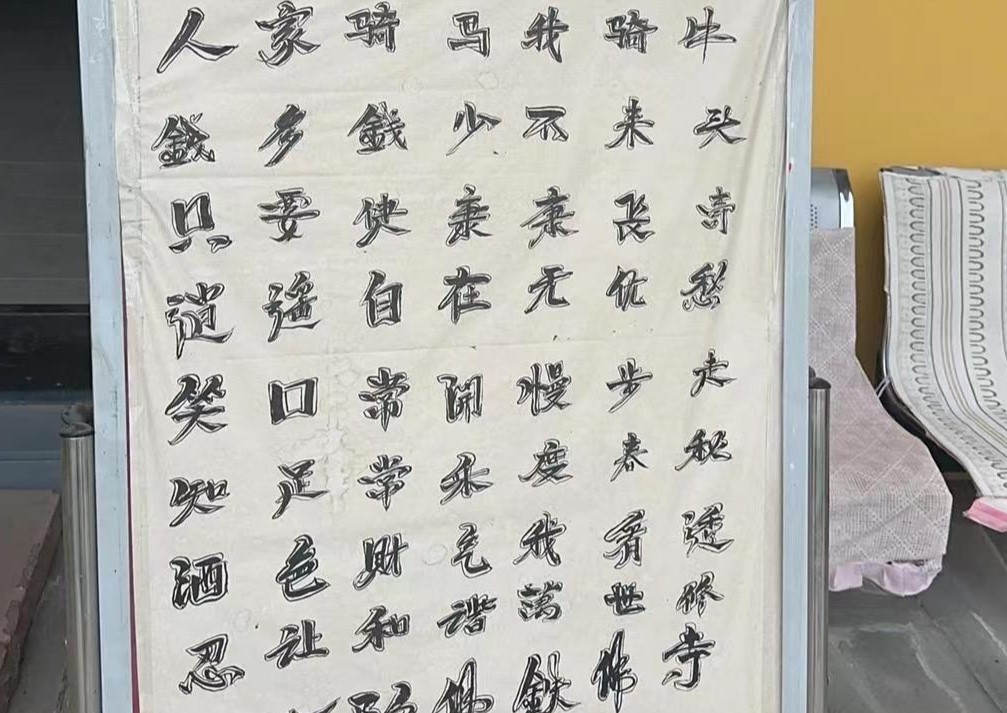 人家骑马我骑牛
錢多錢少不来头
只要快康康长寿
逍遥自在无优愁
笑口常開慢步走
知足常乐度春秋
酒色財气我看透
忍让和谐萬世修
佛鉄佛寺